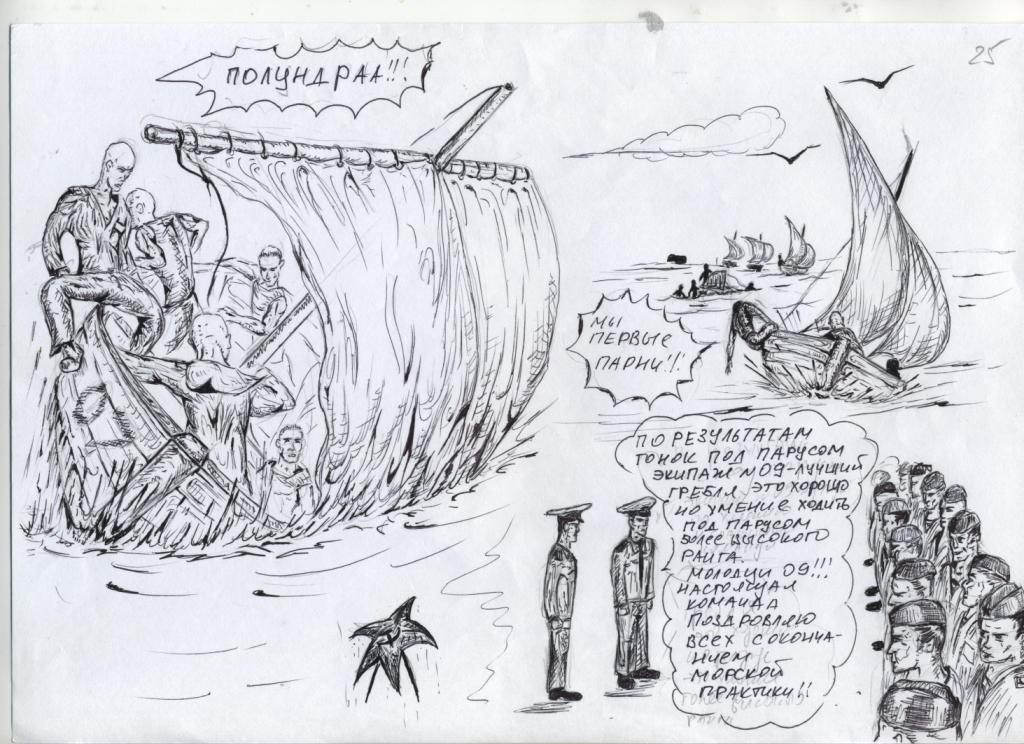 25
ПОЛУНДРАА!!!
МЫ
ПЕРВЫЕ
ПАРНИ!!
ПО РЕЗУЛЬТАТАМ
ГОНОК ПОД ПАРУСОМ
ЭКИПАЖ №09-ЛУЧШИЙ
ГРЕБЛЯ ЭТО ХОРОШО
НО УМЕНИЕ ХОДИТЬ
ПОД ПАРУСОМ
БОЛЕЕ ВЫСОКОГО
РАНГА.
МОЛОДЦЫ 09!!!
НАСТОЯЩАЯ
КОМАНДА
ПОЗДРОВЛЯЮ
ВСЕХ С ОКОНЧА-
НИЕМ
МОРСКОЙ
ПРАКТИКИ!!